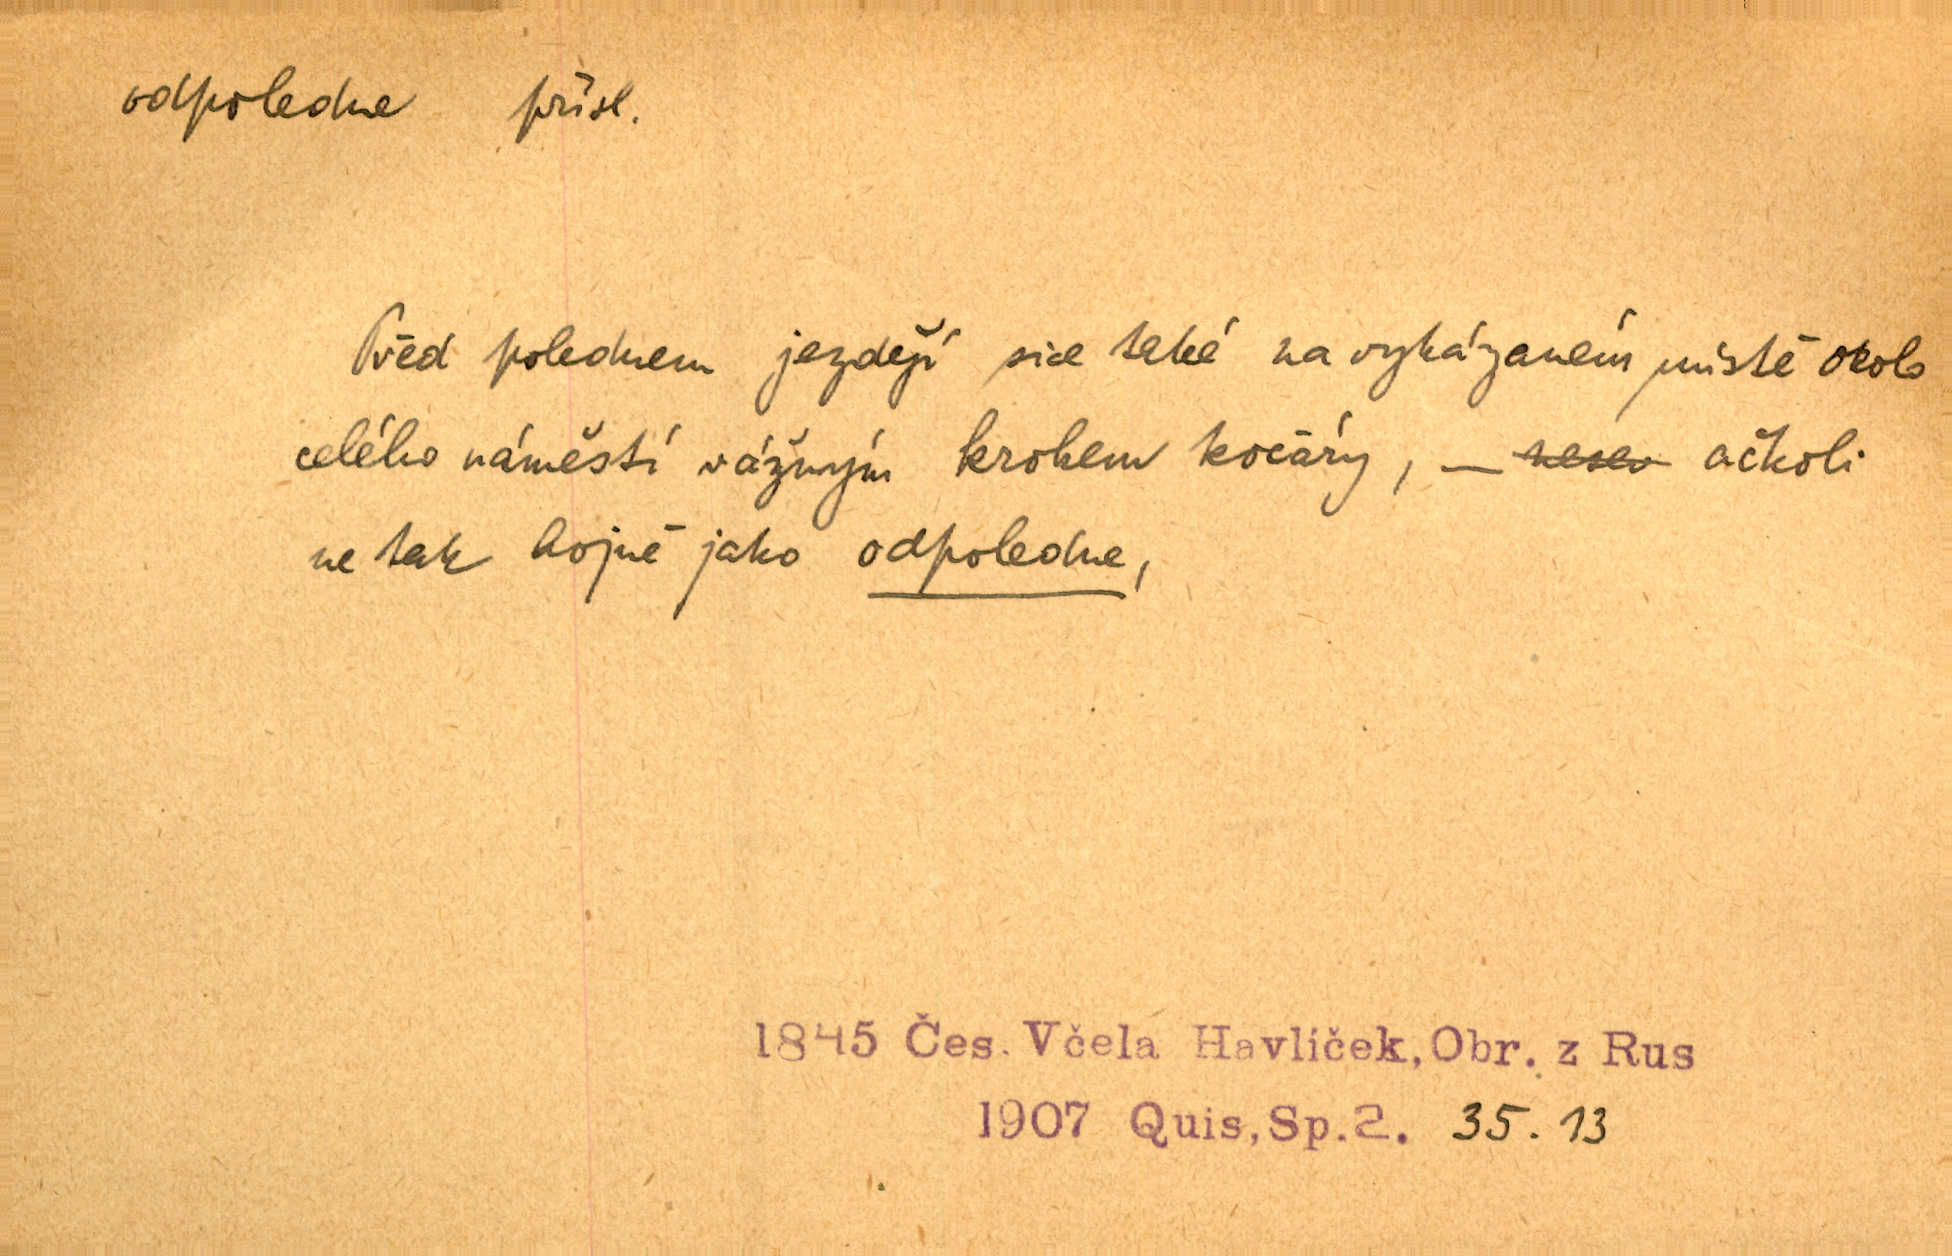 odpoledne přísl.
Před polednem jezdějí sice také na vykázaném místě okolo
celého náměstí vážným krokem kočáry, — ačkoli
ne tak hojně jako odpoledne,
1845 Čes. Včela Havlíček, Obr. z Rus
1907 Quis, Sp. 2. 35. 13